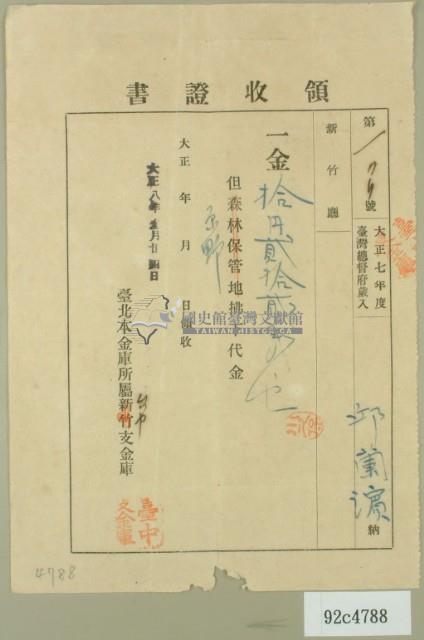 領收證書
第一七四號
大正七年度
臺灣總督府歲入
邱蘭濱 納
新竹廳
一金拾円貳拾貳
但森林保管地拂下代金
原野
大正 年 月 日領收
大正八年 月廿 日
臺北本金庫所屬新竹支金庫
台中
臺中支金庫
國史館臺灣文獻館
TAIWAN HISTORICA
4788
92c4788